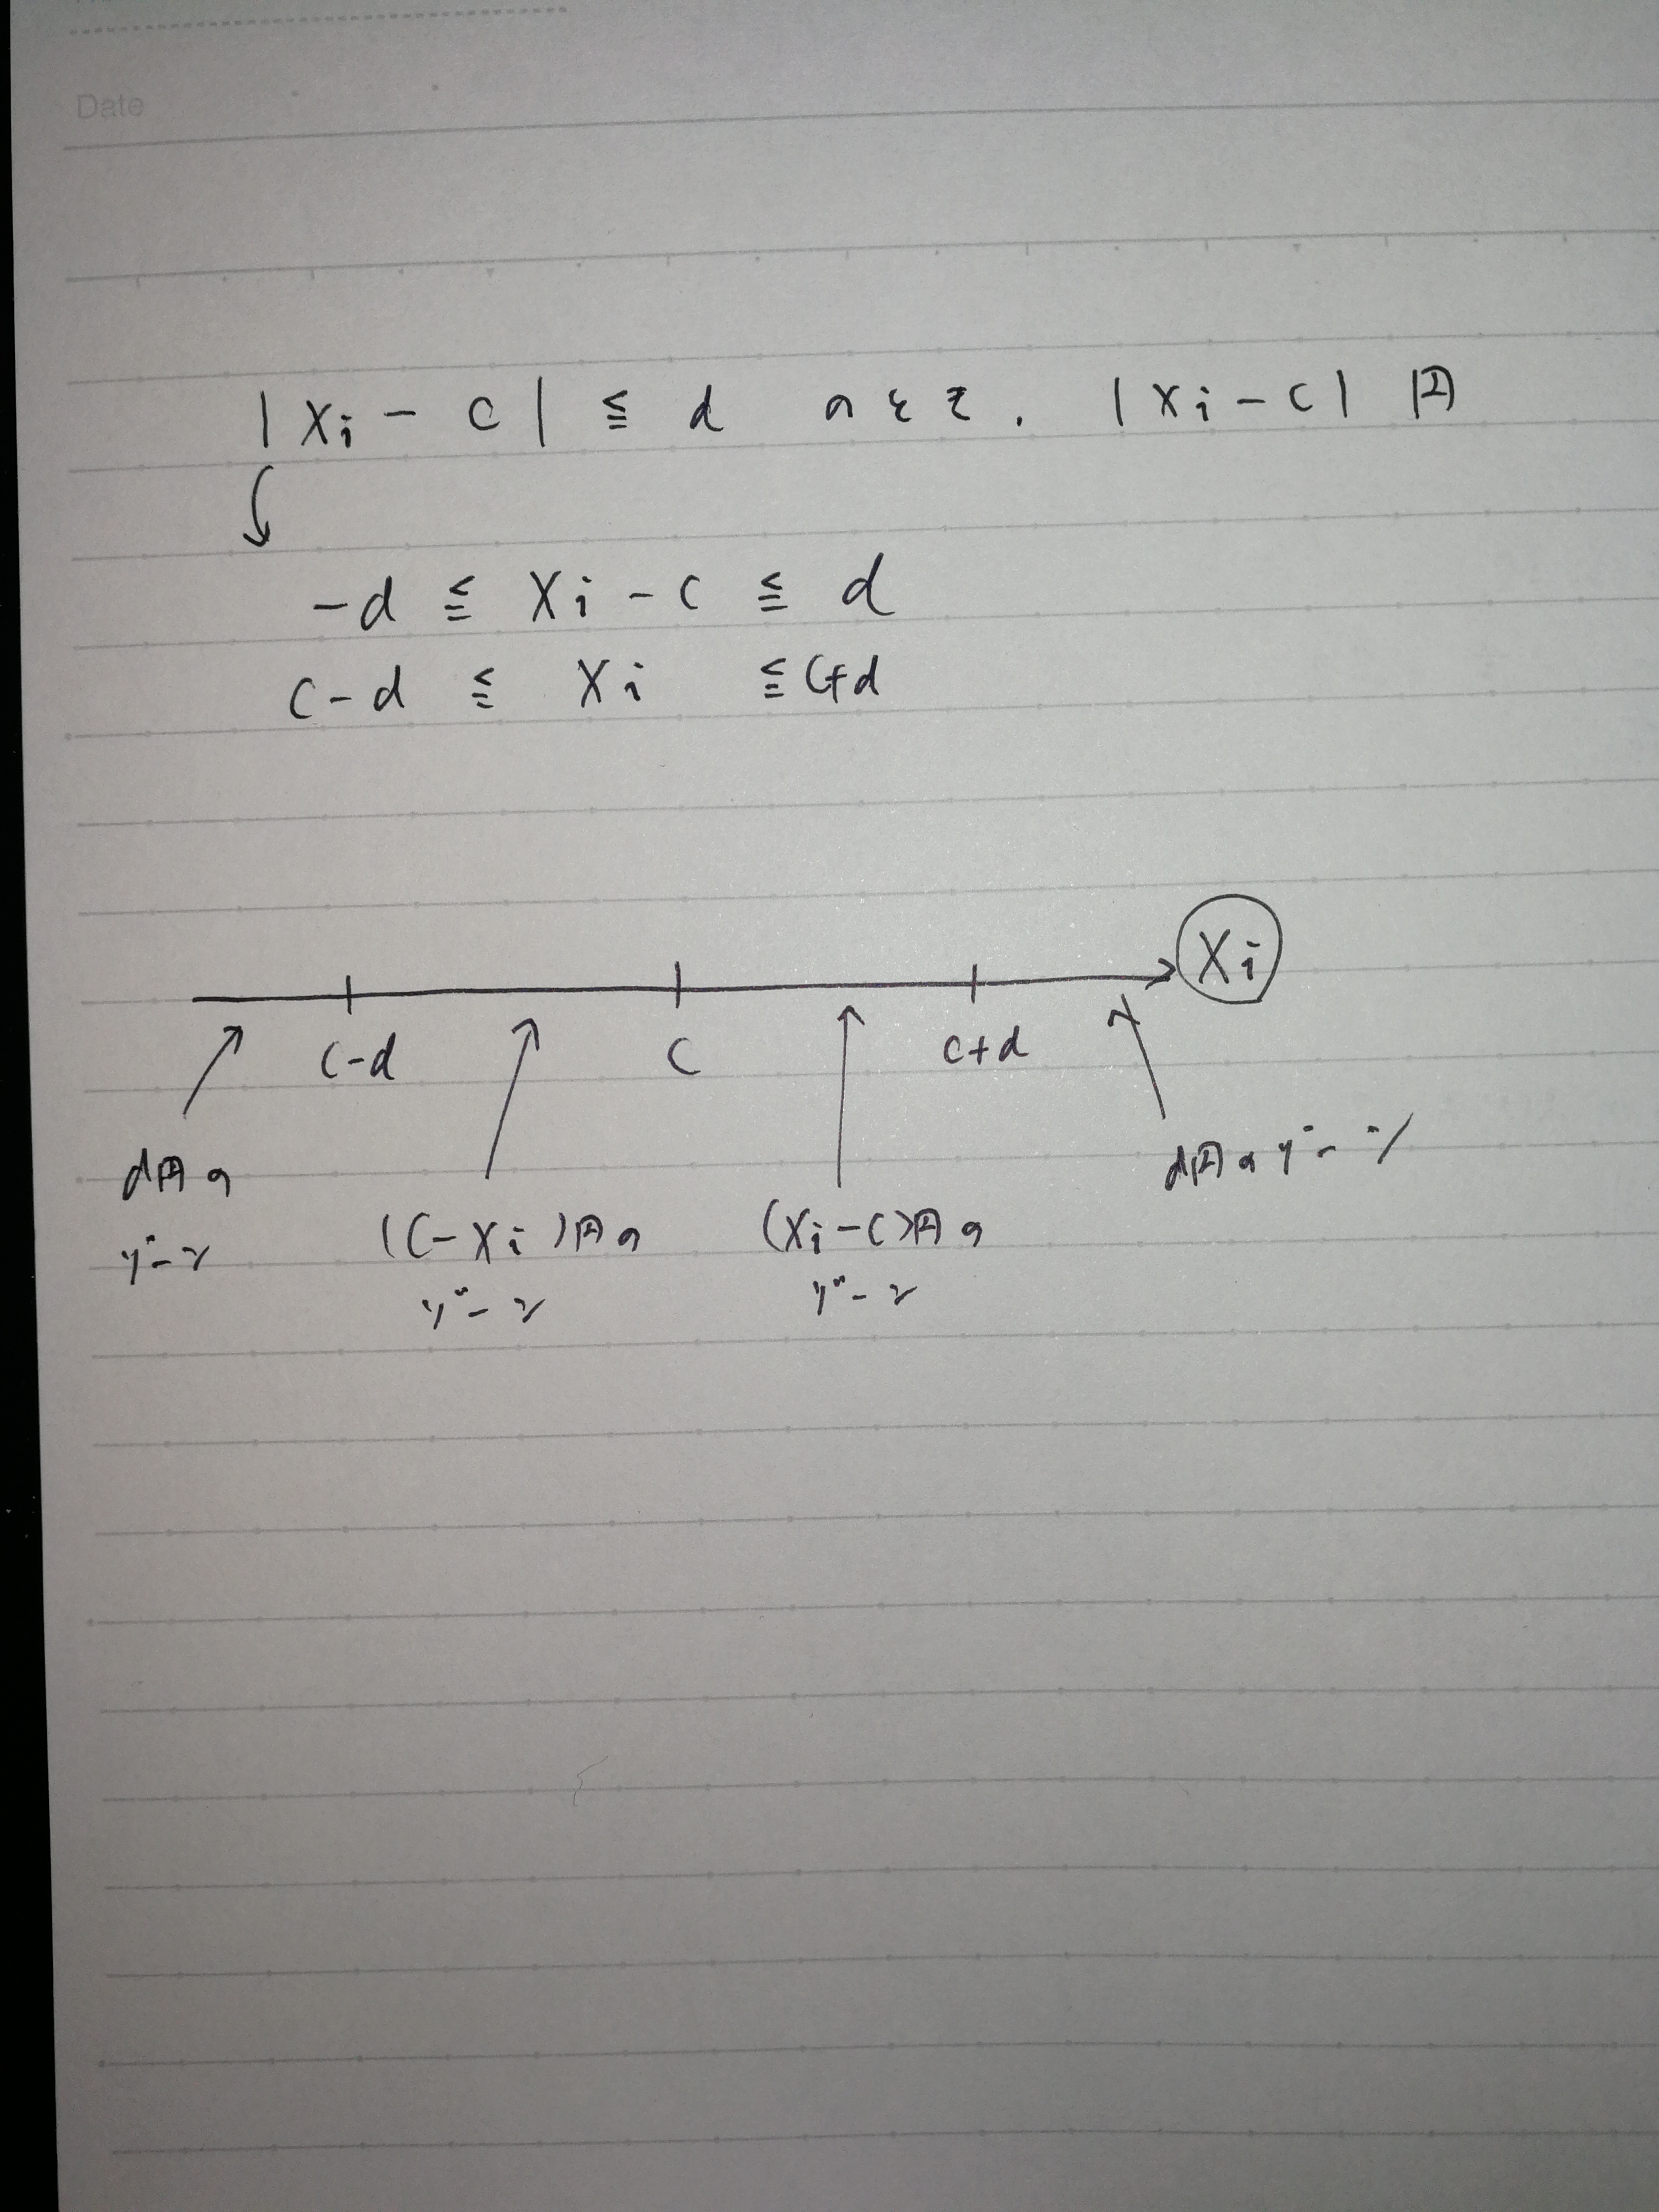 Date
|Xi - C| ≦ d のとき. |Xi-C| 円
-d ≦ Xi - C ≦ d
C-d ≦ Xi ≦ C+d
Xi
C-d C C+d
d円の
ゲーソ
(C-Xi)円の
ゲーソ
(Xi-C)円の
ゲーソ
d円のゲーソ